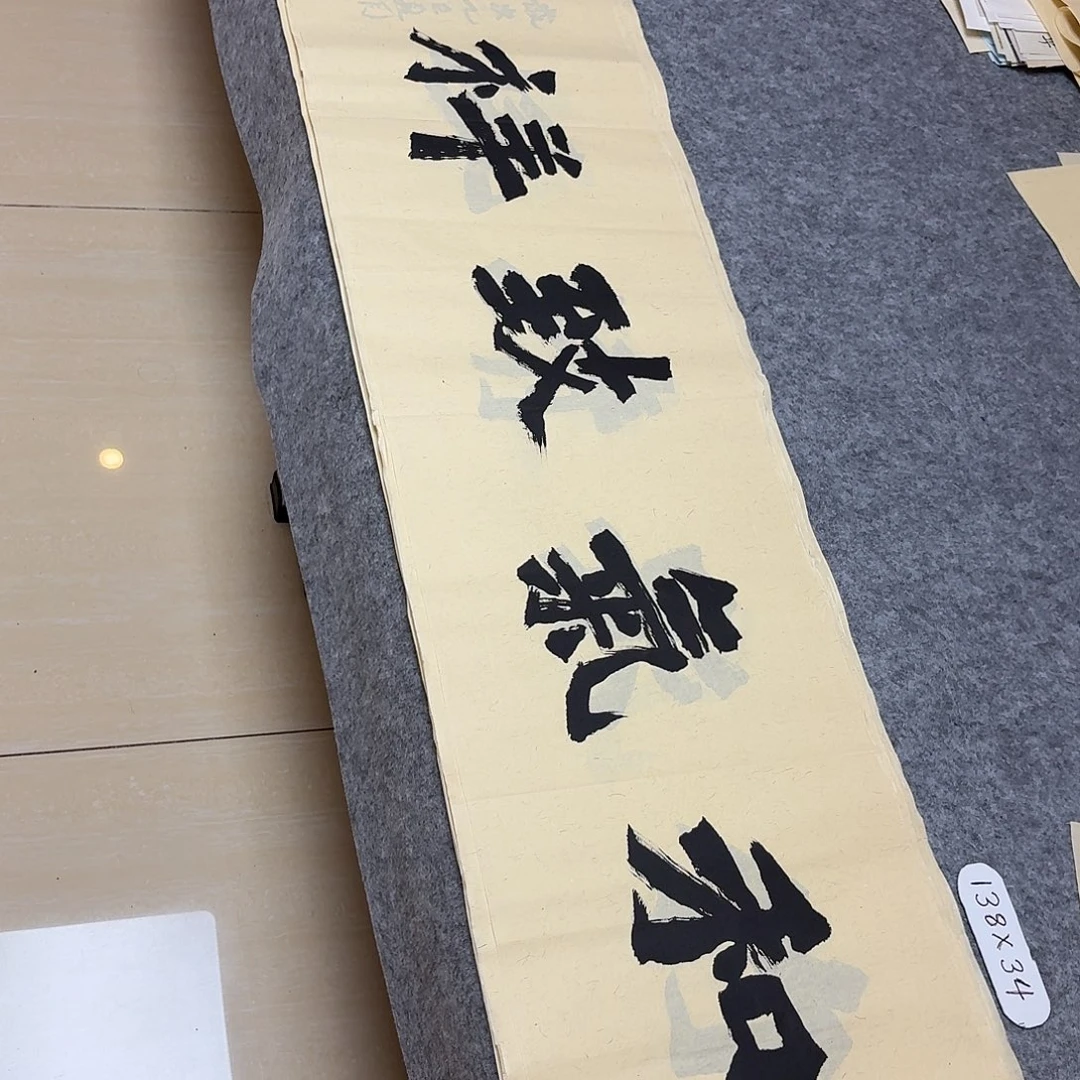 和氣致祥
138X34